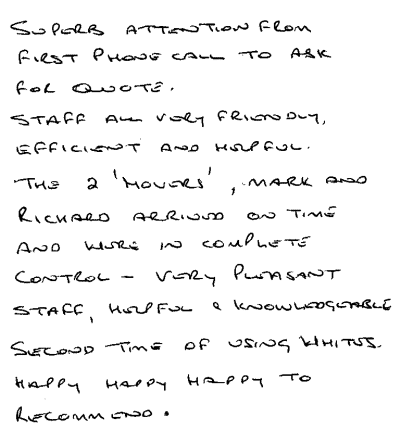 SUPERB ATTENTION FROM
FIRST PHONE CALL TO ASK
FOR QUOTE.
STAFF ALL VERY FRIENDLY,
EFFICIENT AND HELPFUL.
THE 2 'MOVERS', MARK AND
RICHARD ARRIVED ON TIME
AND WERE IN COMPLETE
CONTROL - VERY PLEASANT
STAFF, HELPFUL & KNOWLEDGEABLE
SECOND TIME OF USING WHITES.
HAPPY HAPPY HAPPY TO
RECOMMEND.